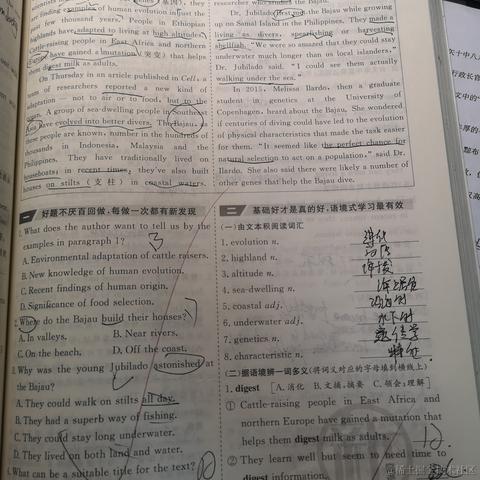 examples of human evolution in just the
few thousand years. People in Ethiopian
highlands have adapted to living at high altitudes.
Cattle-raising people in East Africa and northern
have gained a mutation (突变) that helps
them digest milk as adults.
On Thursday in an article published in Cell, a
team of researchers reported a new kind of
adaptation — not to air or to food, but to the
A group of sea-dwelling people in Southeast
Asia have evolved into better divers. The Bajau, as
these people are known, number in the hundreds of
thousands in Indonesia, Malaysia and the
Philippines. They have traditionally lived on
houseboats; in recent times, they've also built
houses on stilts (支柱) in coastal waters.
researcher who studied the Bajau.
Dr. Jubilado first met the Bajau while growing
up on Samal Island in the Philippines. They made a
living as divers, spearfishing or harvesting
shellfish. "We were so amazed that they could stay
underwater much longer than us local islanders,"
Dr. Jubilado said. "I could see them actually
walking under the sea."
In 2015, Melissa Ilardo, then a graduate
student in genetics at the University of
Copenhagen, heard about the Bajau. She wondered
if centuries of diving could have led to the evolution
of physical characteristics that made the task easier
for them. "It seemed like the perfect chance for
natural selection to act on a population," said Dr.
Ilardo. She also said there were likely a number of
other genes that help the Bajau dive.
一 好题不厌百回做,每做一次都有新发现
What does the author want to tell us by the
examples in paragraph 1?
A. Environmental adaptation of cattle raisers.
B. New knowledge of human evolution.
C. Recent findings of human origin.
D. Significance of food selection.
2. Where do the Bajau build their houses?
A. In valleys. B. Near rivers.
C. On the beach. D. Off the coast.
3. Why was the young Jubilado astonished at
the Bajau?
A. They could walk on stilts all day.
B. They had a superb way of fishing.
C. They could stay long underwater.
D. They lived on both land and water.
4. What can be a suitable title for the text?
二 基础好才是真的好,语境式学习最有效
(一)由文本积阅读词汇
1. evolution n. 进化
2. highland n.
3. altitude n.
4. sea-dwelling n.
5. coastal adj.
6. underwater adj. 水下的
7. genetics n. 遗传学
8. characteristic n. 特征
(二)据语境辨一词多义(将词义对应的字母填到横线上)
1. digest [A. 消化 B. 文摘,摘要 C. 领会;理解]
① Cattle-raising people in East Africa and
northern Europe have gained a mutation that
helps them digest milk as adults.
② They learn well but seem to need time to
digest information.
@稀土掘金技术社区